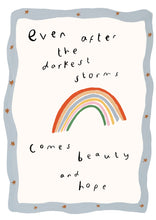 even after
the
darkest
storms
comes beauty
and
hope